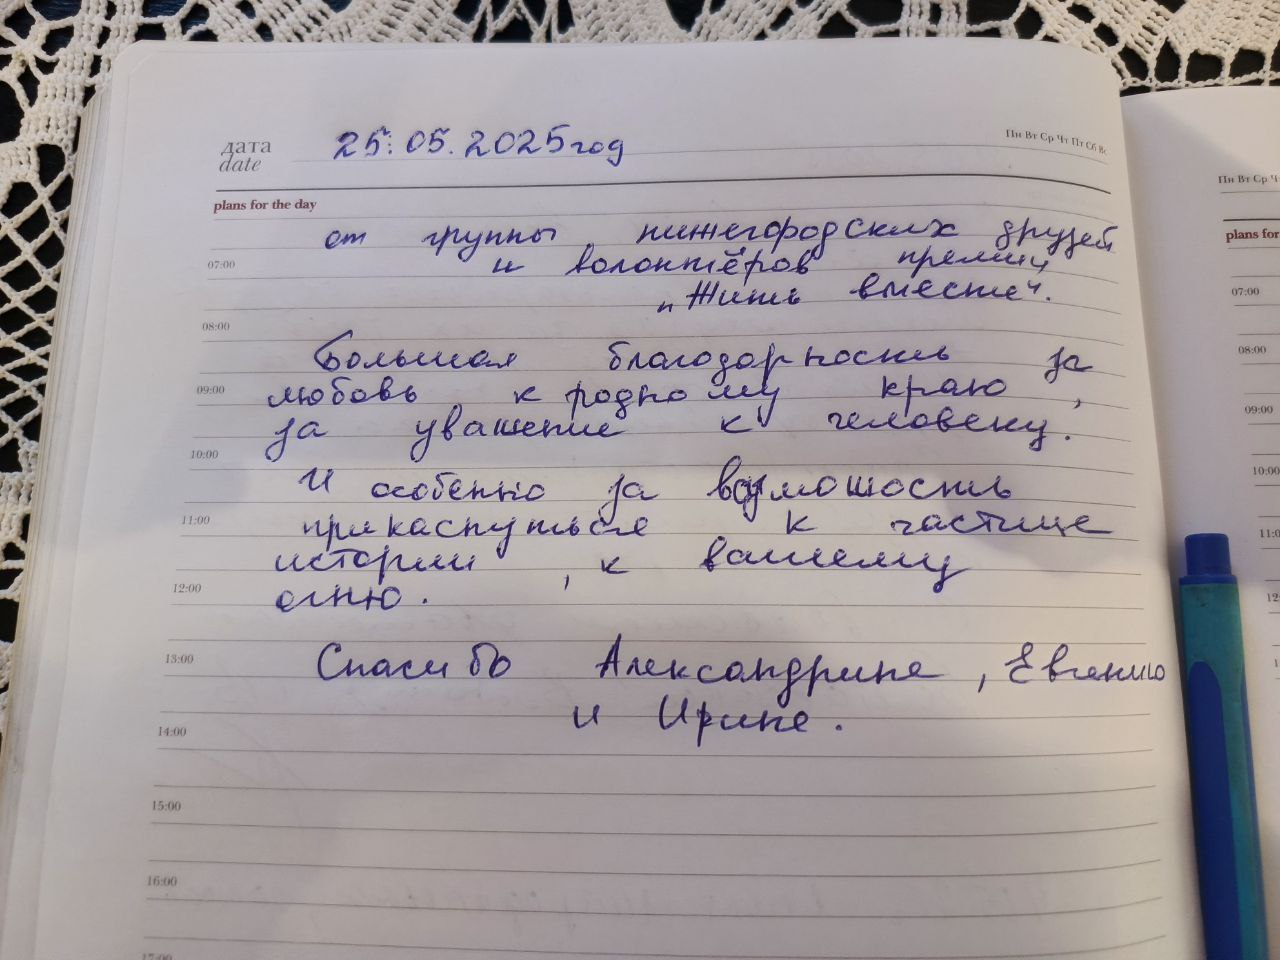 дата 25.05.2025год Пн Вт Ср Чт Пт Сб Вс
date
plans for the day
от группы нижегородских друзей
07:00 и волонтёров премии
„Жить вместе“.
08:00
Большая благодарность за
09:00 любовь к родному краю,
за уважение к человеку.
10:00
И особенно за возмошость
11:00 прикаснуться к частице
истории, к вашему
12:00 огню.
13:00 Спасибо Александрине, Евгению
и Ирине.
14:00
15:00
16:00
17:00
Пн Вт Ср
plans for
07:00
08:00
09:00
10:00
11:0
12: